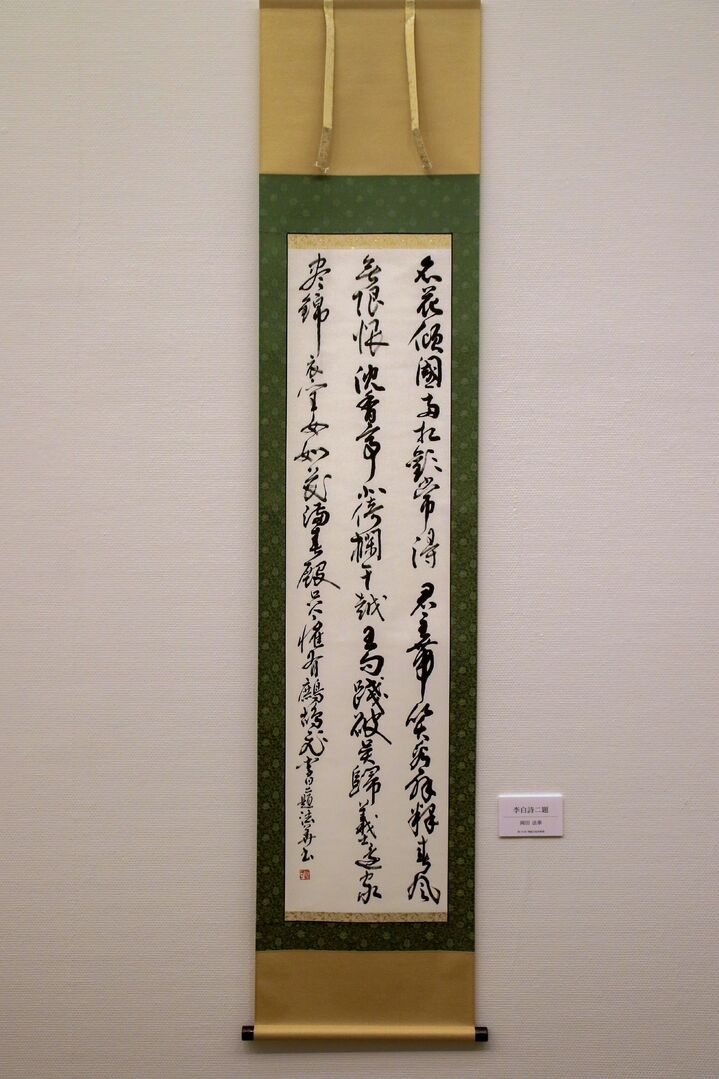 名花傾國両相歡常得君王帯笑看解釋春風
無限恨沈香亭北倚欄干越王勾踐破呉歸義士還家
盡錦衣宮女如花満春殿只今惟有鷓鴣飛 李白二題法華書
李白詩二題
岡田 法華